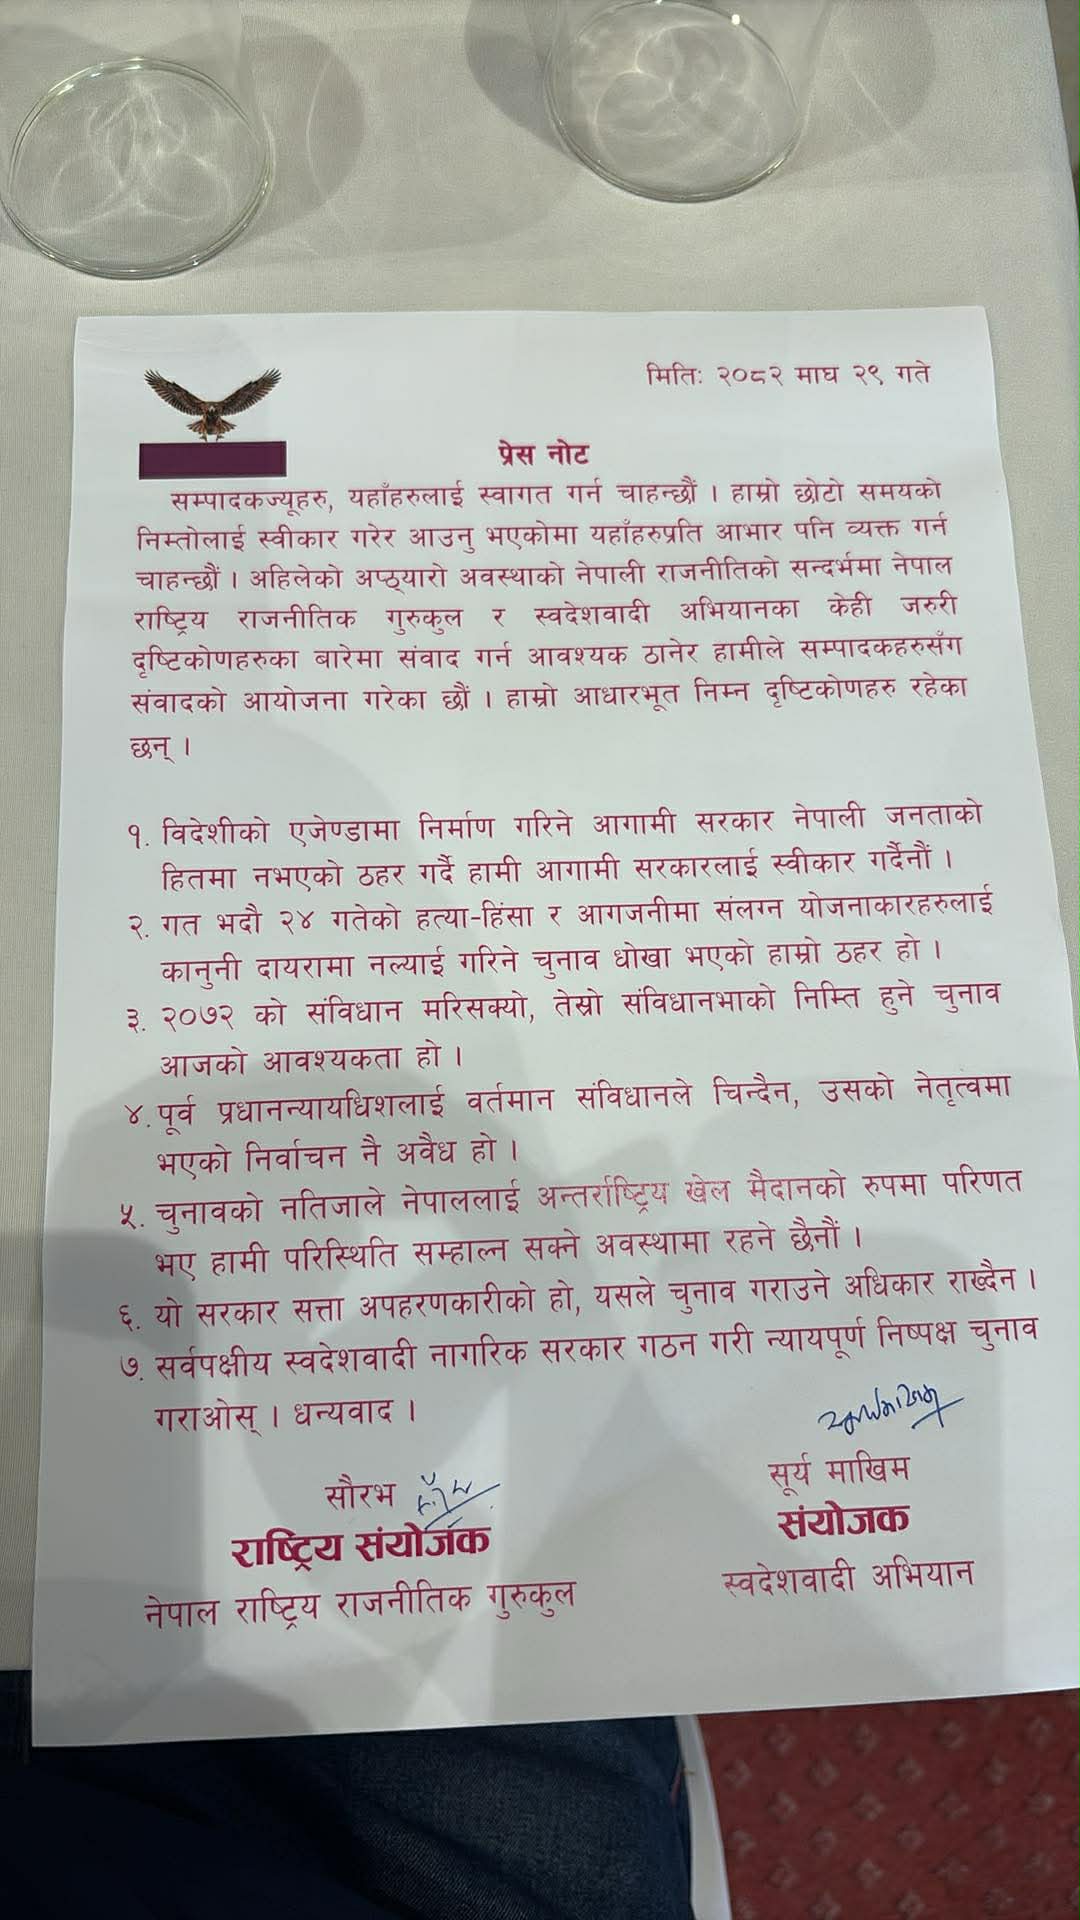 मितिः २०८२ माघ २९ गते
प्रेस नोट
सम्पादकज्यूहरु, यहाँहरुलाई स्वागत गर्न चाहन्छौं । हाम्रो छोटो समयको
निम्तोलाई स्वीकार गरेर आउनु भएकोमा यहाँहरुप्रति आभार पनि व्यक्त गर्न
चाहन्छौं । अहिलेको अप्ठ्यारो अवस्थाको नेपाली राजनीतिको सन्दर्भमा नेपाल
राष्ट्रिय राजनीतिक गुरुकुल र स्वदेशवादी अभियानका केही जरुरी
दृष्टिकोणहरुका बारेमा संवाद गर्न आवश्यक ठानेर हामीले सम्पादकहरुसँग
संवादको आयोजना गरेका छौं । हाम्रो आधारभूत निम्न दृष्टिकोणहरु रहेका
छन् ।
१. विदेशीको एजेण्डामा निर्माण गरिने आगामी सरकार नेपाली जनताको
हितमा नभएको ठहर गर्दै हामी आगामी सरकारलाई स्वीकार गर्दैनौं ।
२. गत भदौ २४ गतेको हत्या-हिंसा र आगजनीमा संलग्न योजनाकारहरुलाई
कानुनी दायरामा नल्याई गरिने चुनाव धोखा भएको हाम्रो ठहर हो ।
३. २०७२ को संविधान मरिसक्यो, तेस्रो संविधानभाको निम्ति हुने चुनाव
आजको आवश्यकता हो ।
४. पूर्व प्रधानन्यायधिशलाई वर्तमान संविधानले चिन्दैन, उसको नेतृत्वमा
भएको निर्वाचन नै अवैध हो ।
५. चुनावको नतिजाले नेपाललाई अन्तर्राष्ट्रिय खेल मैदानको रुपमा परिणत
भए हामी परिस्थिति सम्हाल्न सक्ने अवस्थामा रहने छैनौं ।
६. यो सरकार सत्ता अपहरणकारीको हो, यसले चुनाव गराउने अधिकार राख्दैन ।
७. सर्वपक्षीय स्वदेशवादी नागरिक सरकार गठन गरी न्यायपूर्ण निष्पक्ष चुनाव
गराओस् । धन्यवाद ।
सौरभ
राष्ट्रिय संयोजक
नेपाल राष्ट्रिय राजनीतिक गुरुकुल
सूर्य माखिम
संयोजक
स्वदेशवादी अभियान